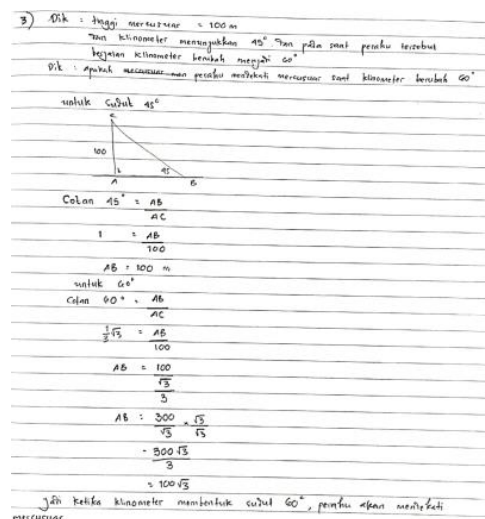 3) Dik : tinggi mercusuar = 100 m
dan klinometer menunjukkan 45°. dan pada saat perahu tersebut
berjalan klinometer berubah menjadi 60°
Dit : Apakah perahu mendekati mercusuar saat klinometer berubah 60°
untuk sudut 45°
C
100
45
A B
Cotan 45° = AB
AC
1 = AB
100
AB = 100 m
untuk 60°
Cotan 60° = AB
AC
1/3 √3 = AB
100
AB = 100
√3
3
AB = 300 × √3
√3 √3
= 300 √3
3
= 100 √3
Jadi ketika klinometer membentuk sudut 60°, perahu akan mendekati
mercusuar